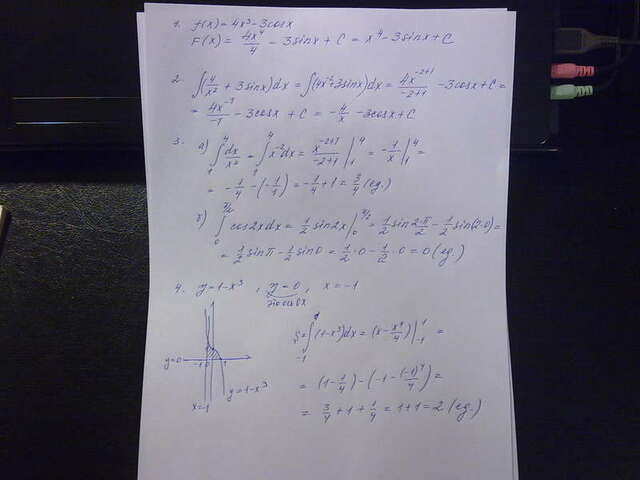 1. f(x) = 4x³ - 3cosx
F(x) = 4x⁴/4 - 3sinx + C = x⁴ - 3sinx + C
2. ∫(4/x² + 3sinx)dx = ∫(4x⁻² + 3sinx)dx = 4x⁻²⁺¹/-2+1 - 3cosx + C =
= 4x⁻¹/-1 - 3cosx + C = -4/x - 3cosx + C
3. а) ∫₁⁴ dx/x² = ∫₁⁴ x⁻²dx = x⁻²⁺¹/-2+1 |₁⁴ = -1/x |₁⁴ =
= -1/4 - (-1/1) = -1/4 + 1 = 3/4 (ед.)
б) ∫₀^π/2 cos2xdx = 1/2 sin2x |₀^π/2 = 1/2 sin 2·π/2 - 1/2 sin(2·0) =
= 1/2 sinπ - 1/2 sin0 = 1/2·0 - 1/2·0 = 0 (ед.)
4. y = 1 - x³, y = 0, x = -1
это ось Ox
S = ∫₋₁¹ (1-x³)dx = (x - x⁴/4) |₋₁¹ =
y=0 -1 0 1
= (1 - 1/4) - (-1 - (-1)⁴/4) =
y = 1 - x³
x=-1
= 3/4 + 1 + 1/4 = 1 + 1 = 2 (ед.)